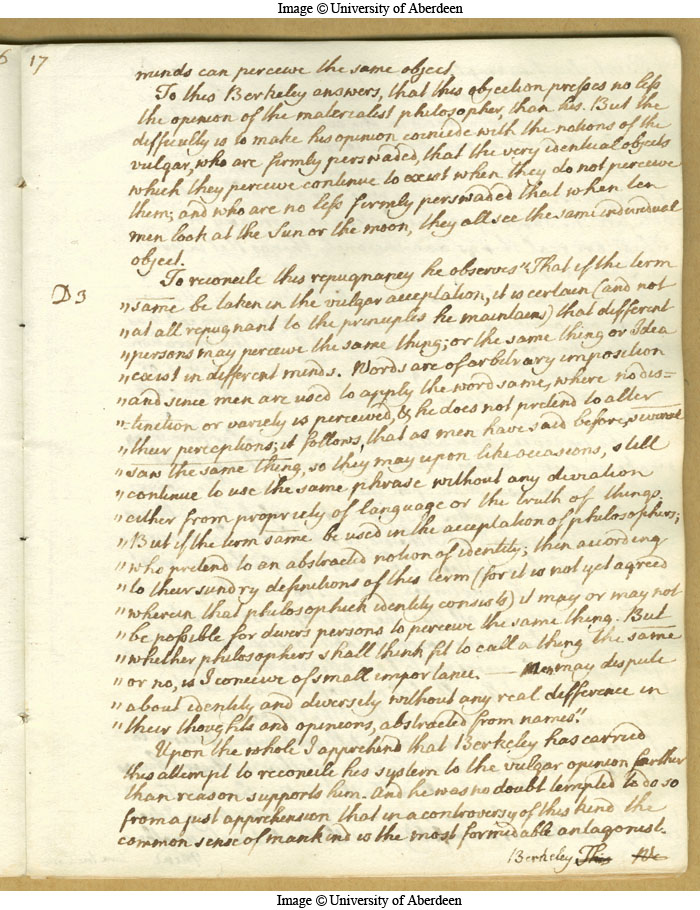 Image © University of Aberdeen
6 17
minds can perceive the same object.
To this Berkeley answers, that this objection presses no less
the opinion of the materialist philosopher, than his. But the
difficulty is to make his opinion coincide with the notions of the
vulgar, who are firmly perswaded, that the very identical objects
which they perceive continue to exist when they do not perceive
them; and who are no less firmly perswaded that when ten
men look at the Sun or the moon, they all see the same individual
object.
To reconcile this repugnancy he observes "That if the term
D 3
"same be taken in the vulgar acceptation, it is certain (and not
"at all repugnant to the principles he maintains) that different
"persons may perceive the same thing; or the same thing or Idea
"exist in different minds. Words are of arbitrary imposition
"and since men are used to apply the word same, where no dis=
"=tinction or variety is perceived, & he does not pretend to alter
"their perceptions; it follows, that as men have said before, several
"saw the same thing, so they may upon like occasions, still
"continue to use the same phrase without any deviation
"either from propriety of language or the truth of things.
"But if the term same be used in the acceptation of philosophers;
"who pretend to an abstracted notion of identity; then according
"to their sundry definitions of this term (for it is not yet agreed
"wherein that philosophick identity consists) it may or may not
"be possible for divers persons to perceive the same thing. But
"whether philosophers shall think fit to call a thing the same
"or no, is I conceive of small importance. — Men may dispute
"about identity and diversity without any real difference in
"their thoughts and opinions, abstracted from names".
Upon the whole I apprehend that Berkeley has carried
this attempt to reconcile his system to the vulgar opinion farther
than reason supports him. And he was no doubt tempted to do so
from a just apprehension that in a controversy of this kind the
common sense of mankind is the most formidable antagonist.
Berkeley This
Image © University of Aberdeen